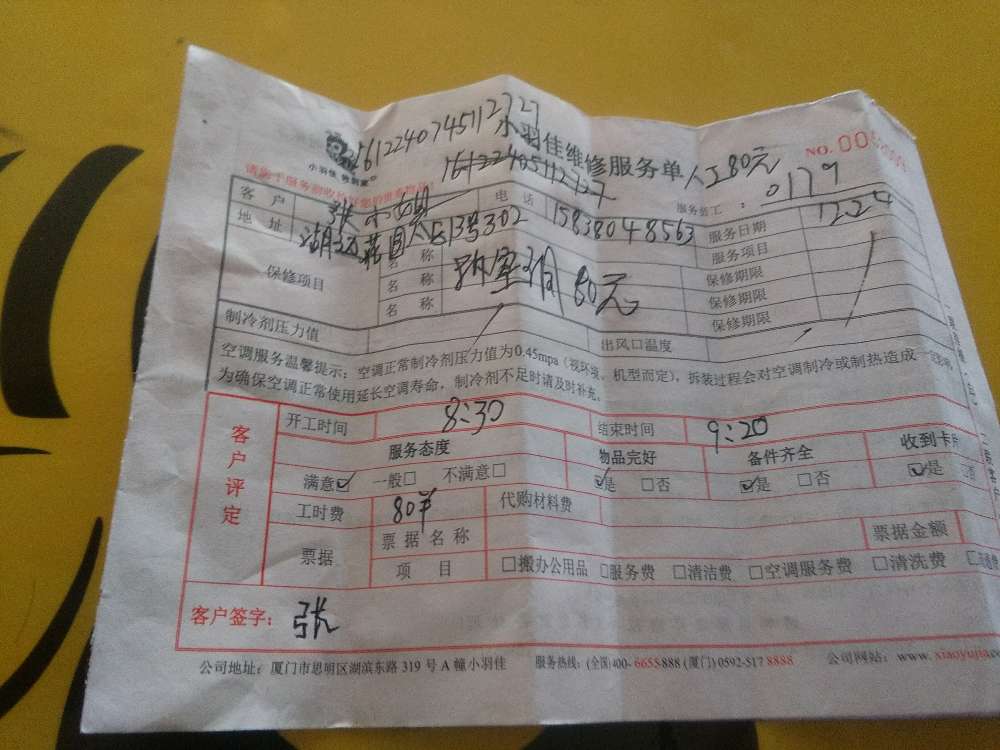 16122407451127 27
小羽佳维修服务单 人工80元 NO.00
小羽佳
16122405112727
服务员工：0179
客户 张小姐 电话 15838048563 服务日期 1224
地址 13号302 服务项目
保修项目 名称 80元 保修期限
名称 保修期限
名称 保修期限
制冷剂压力值 出风口温度
空调服务温馨提示：空调正常制冷剂压力值为0.45mpa（视环境、机型而定），拆装过程会对空调制冷或制热造成一定影响，
为确保空调正常使用延长空调寿命，制冷剂不足时请及时补充。
客户评定
开工时间 8:30 结束时间 9:20
服务态度 物品完好 备件齐全 收到卡
满意☑ 一般□ 不满意□ ☑是 □否 ☑是 □否 ☑是 否
工时费 80 代购材料费
票据 票据名称 票据金额
项目 □搬办公用品 □服务费 □清洁费 □空调服务费 □清洗费
客户签字：张
公司地址：厦门市思明区湖滨东路 319 号 A 幢小羽佳 服务热线：(全国)400-6655888 (厦门) 0592-517 8888 公司网站：www.xiaoyujia.co